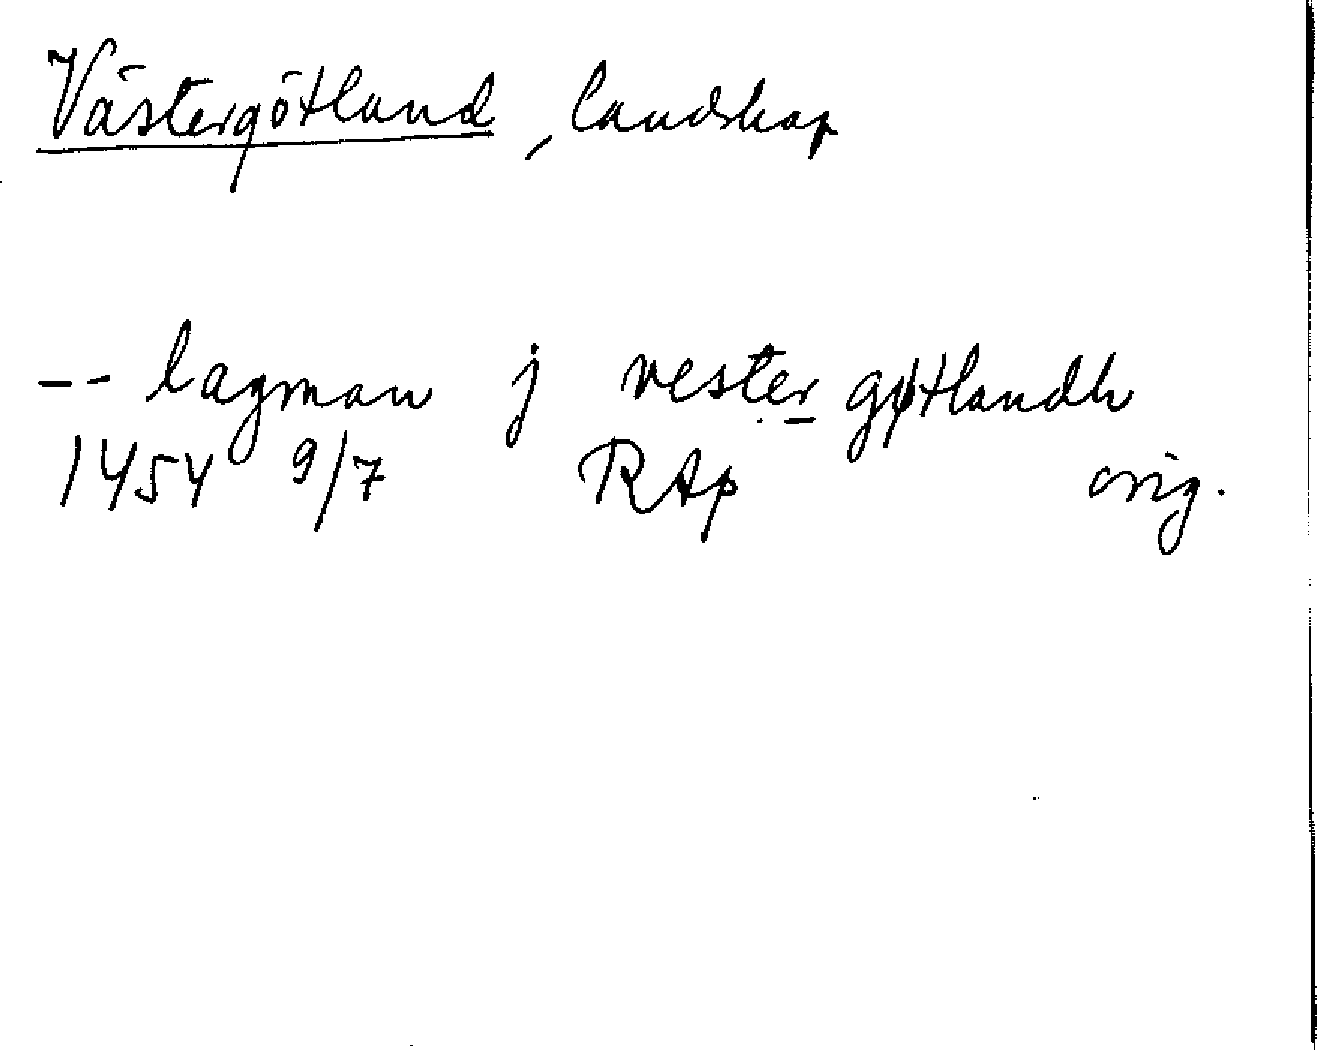 Västergötland, landskap
-- lagman j vester gøtlandh
1454 9/7 RAp orig.